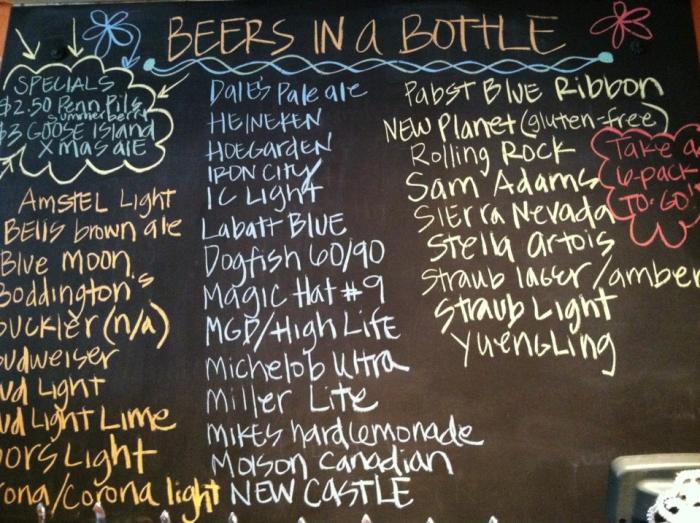 BEERS IN a BOTTLE
SPECIALS
$2.50 Penn Pils,
Summerberry
$3 GOOSE ISLAND
Xmas aLE
AMSTEL Light
BELLS brown ale
Blue Moon
Boddington's
buckler (n/a)
budweiser
ud Light
ud Light Lime
oors Light
rona/Corona light
DaLE's PaLe aLe
HEINEKEN
HOEGarDEN
IRON CITY
IC Light
Labatt BLUE
Dogfish 60/90
Magic Hat #9
MGD/High LIFE
Michelob Ultra
Miller Lite
MIKES hardLemonade
Molson Canadian
NEW CASTLE
Pabst BLUE Ribbon
NEW PLanet (gluten-free)
Rolling Rock
Sam Adams
SIErra Nevada
Stella artois
Straub lager/amber
Straub Light
YUENGLING
Take a
6-pack
TO-GO!